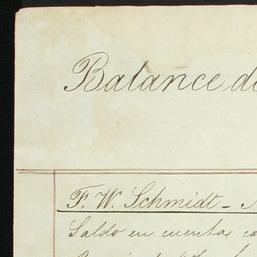 Balance de
F. W. Schmidt -
Saldo en cuentas co